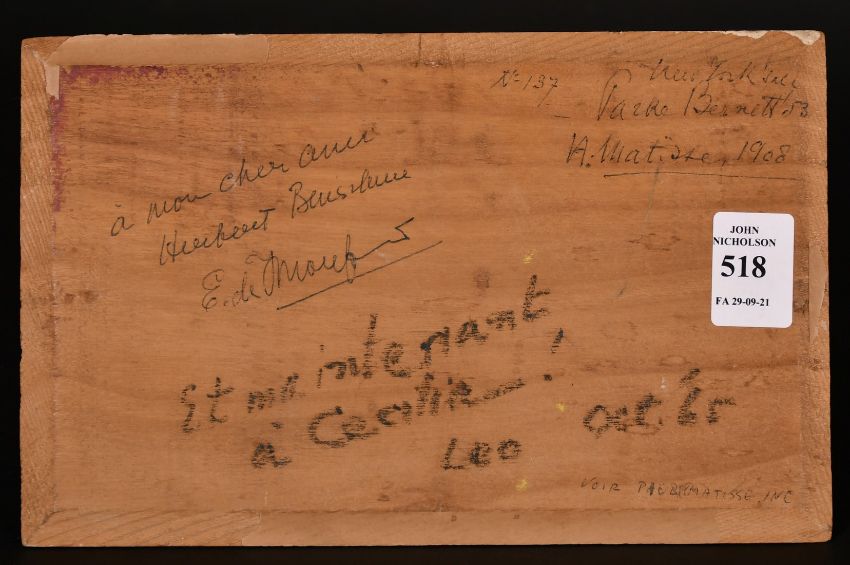 No 137
New York Sale
Parke Bernett 53
H. Matisse, 1908
à mon cher ami
Herbert
E. de
JOHN
NICHOLSON
518
FA 29-09-21
Et maintenant
à Cecilie !
Leo
oct. 65
VOIR PAUL MATISSE, INC